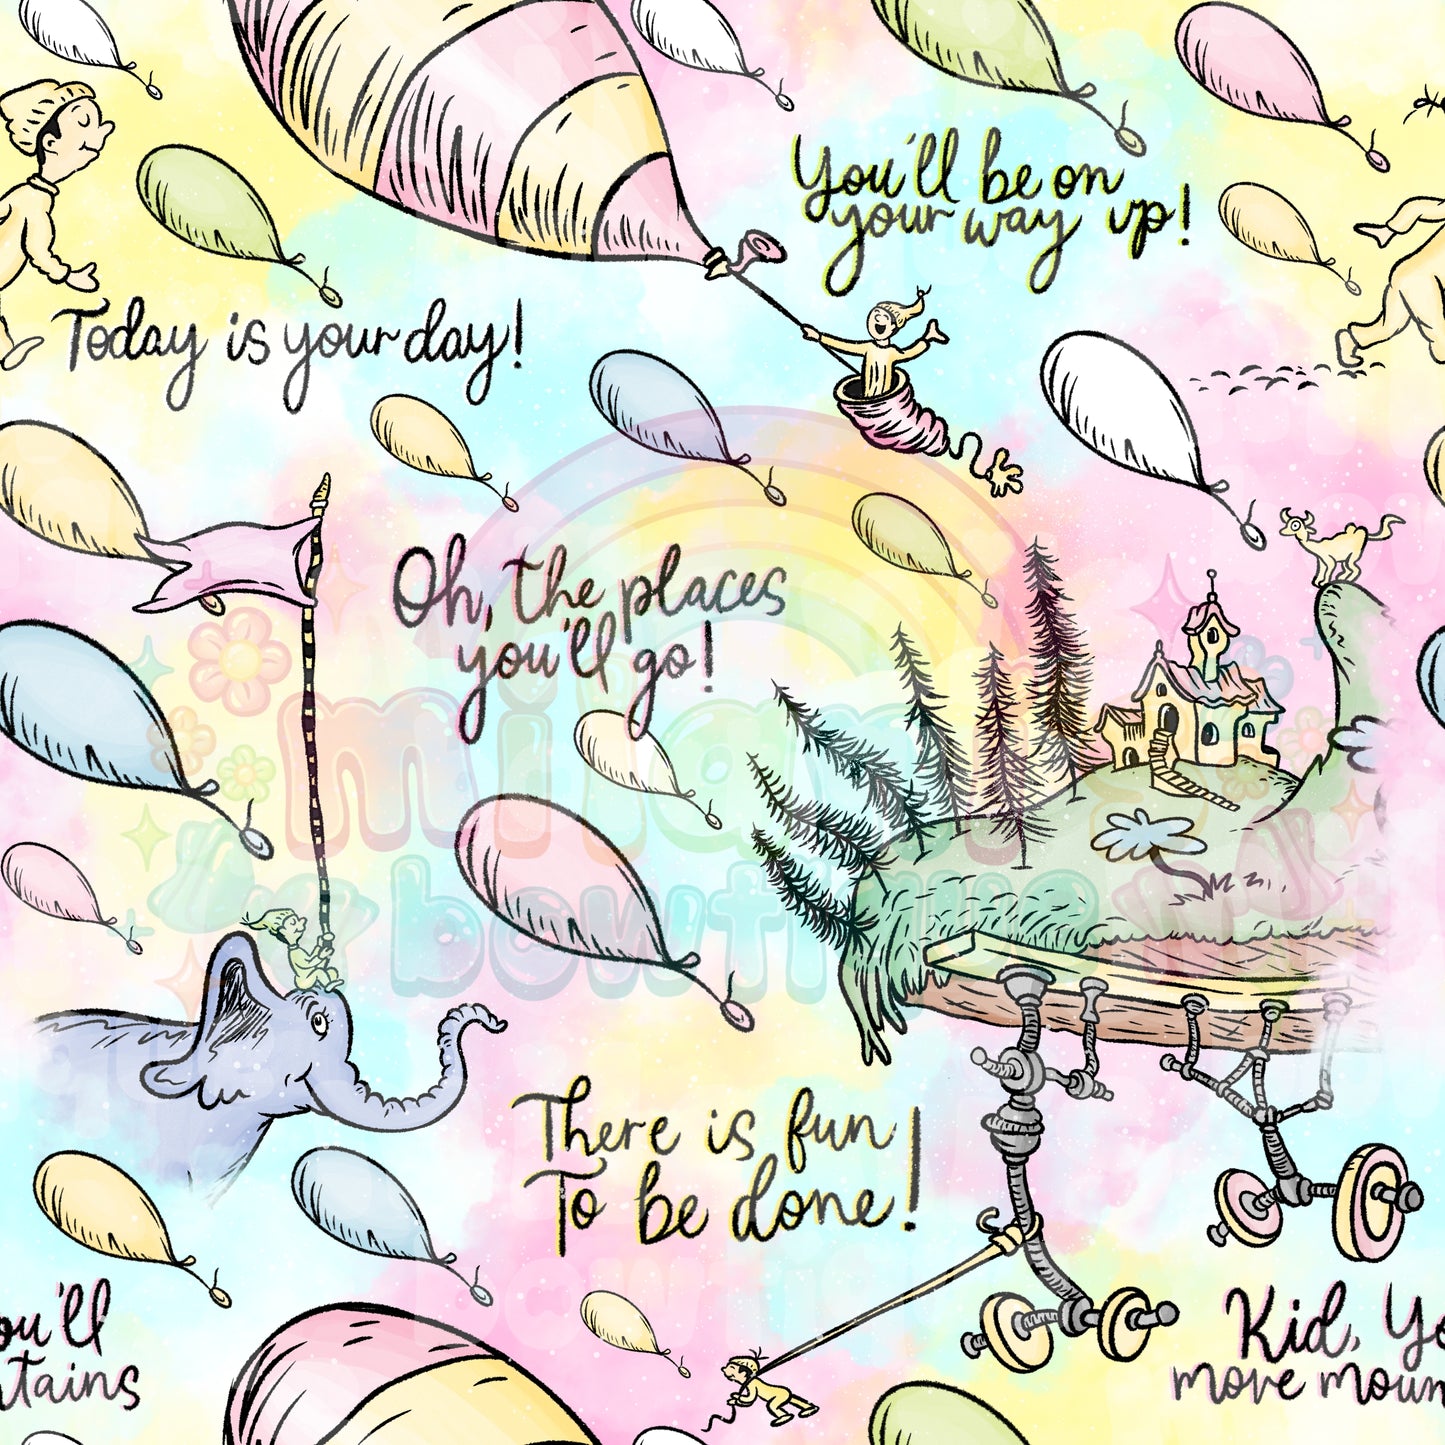 You'll be on
your way up!
Today is your day!
Oh, the places
you'll go!
milany
bowtique
There is fun
To be done!
ou'll
ntains
Kid, Yo
move moun